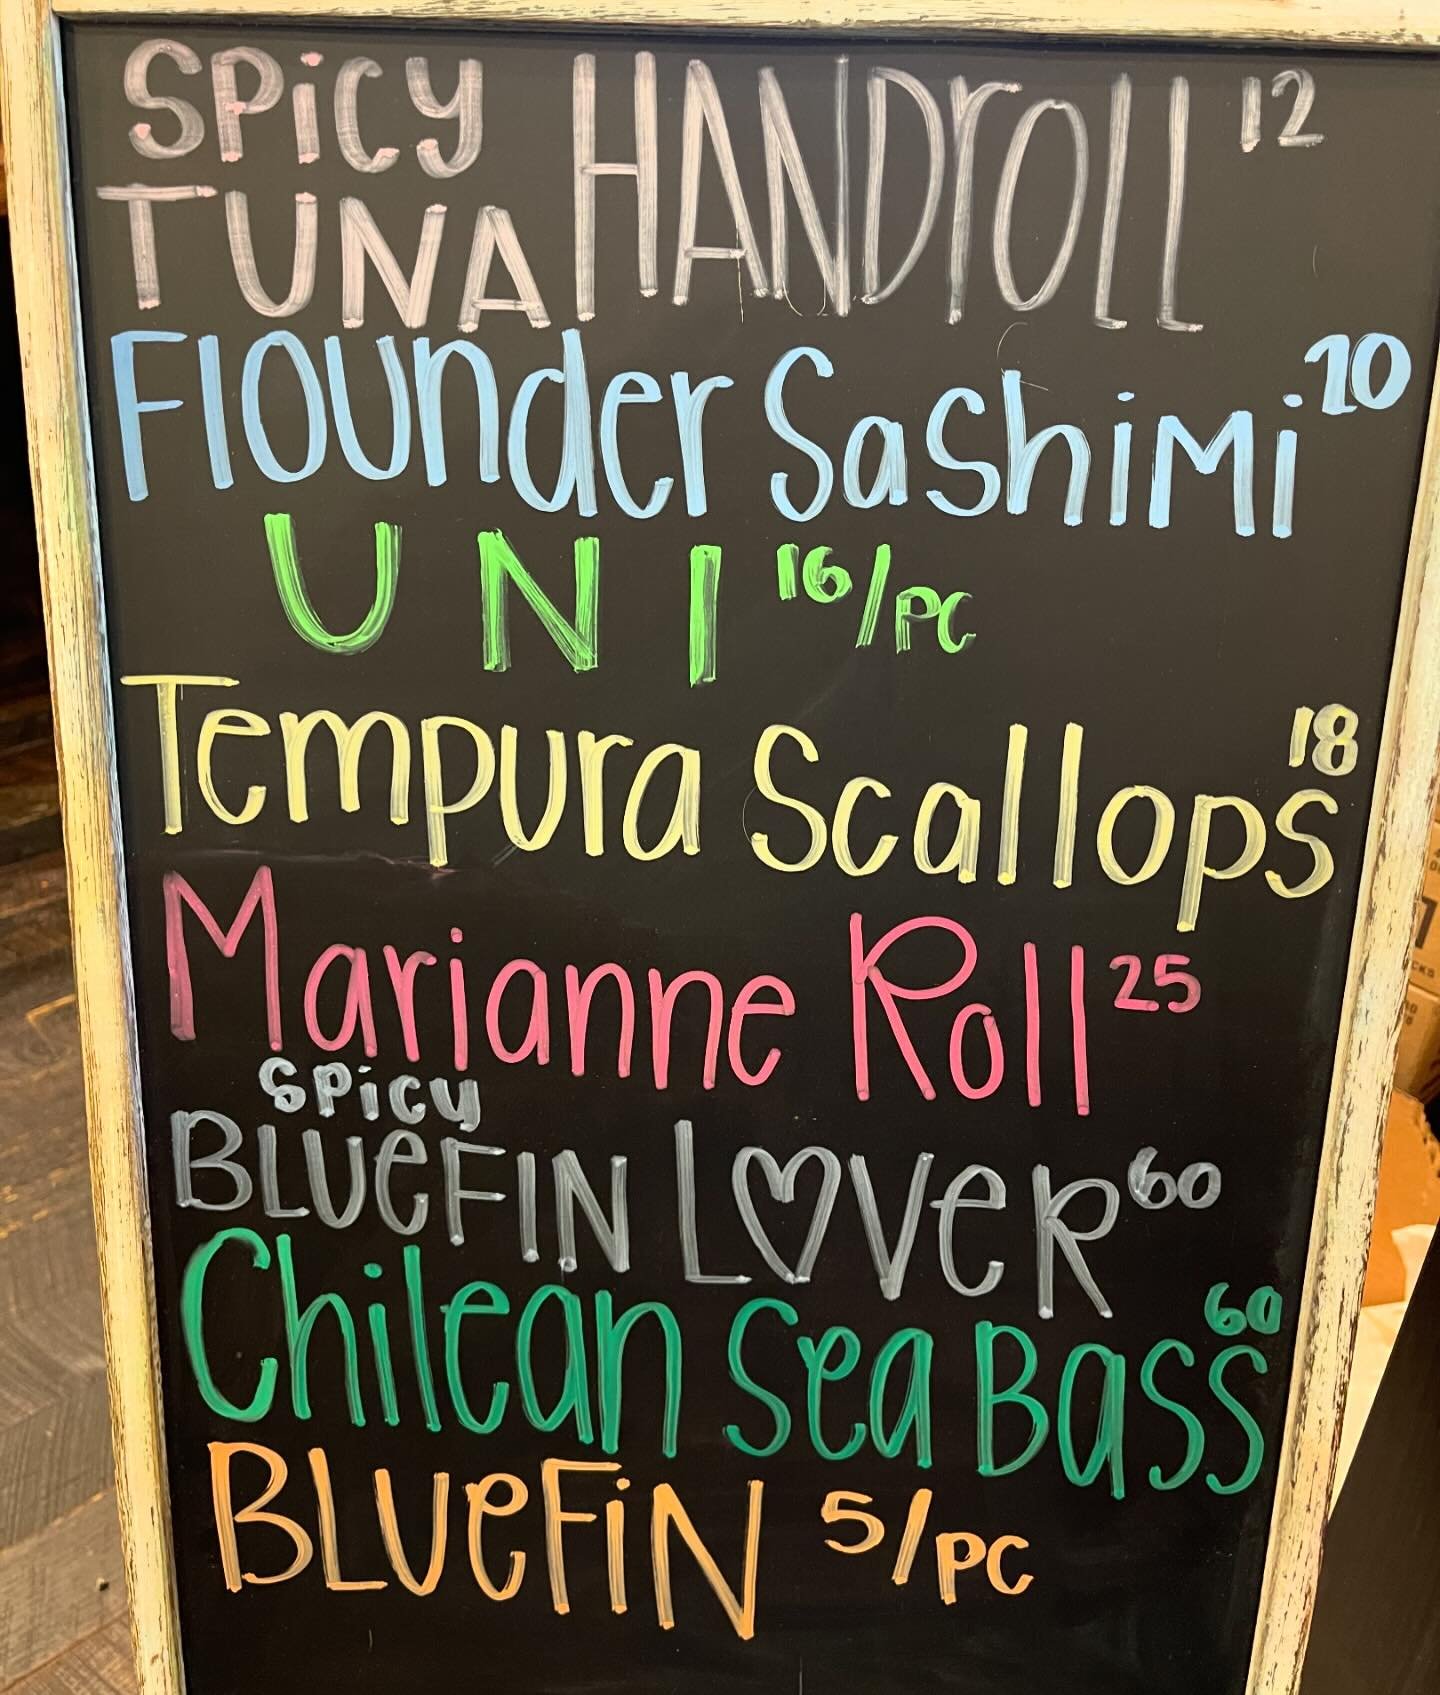 SPiCY TUNA HANDrOLL 12
Flounder SaShiMi 10
UNI 16/PC
Tempura Scallops 18
Marianne Roll 25
SPicy
BLUeFIN L♡VeR 60
Chilean Sea Bass 60
BLUeFiN 5/PC